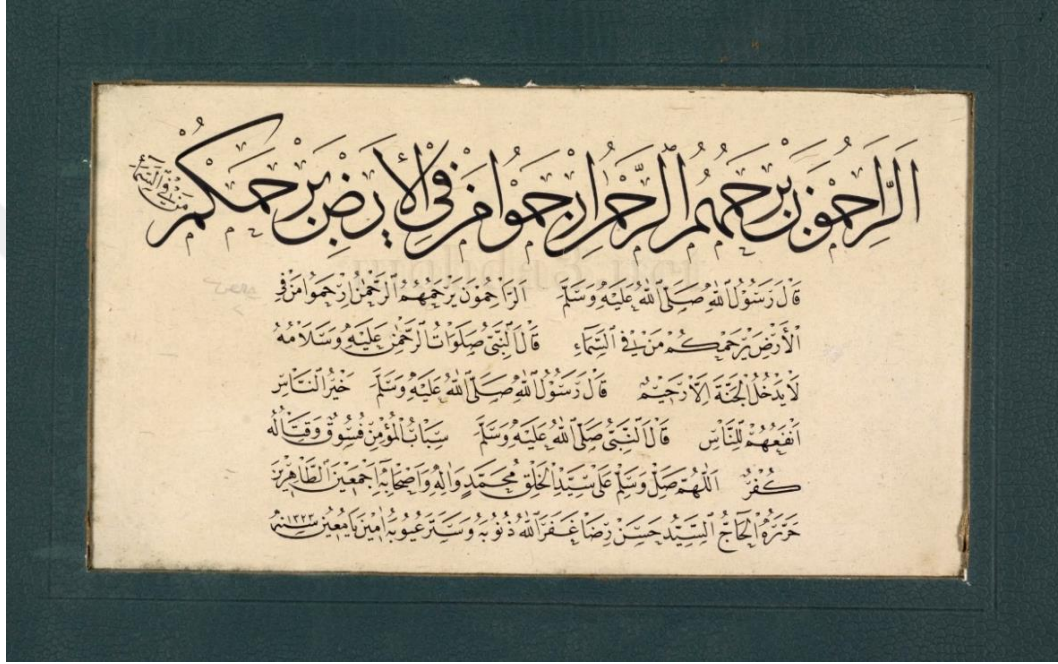 الراحمون يرحمهم الرحمن ارحموا من في الأرض يرحمكم من في السماء
قال رسول الله صلى الله عليه وسلم الراحمون يرحمهم الرحمن ارحموا من في
الأرض يرحمكم من في السماء قال النبي صلوات الرحمن عليه وسلامه
لا يدخل الجنة الا رحيم قال رسول الله صلى الله عليه وسلم خير الناس
انفعهم للناس قال النبي صلى الله عليه وسلم سباب المؤمن فسوق وقتاله
كفر اللهم صل وسلم على سيد الخلق محمد واله واصحابه اجمعين الطاهرين
حرره الحاج السيد حسن رضا غفر الله ذنوبه وستر عيوبه امين يا معين سنه ١٣٢٣